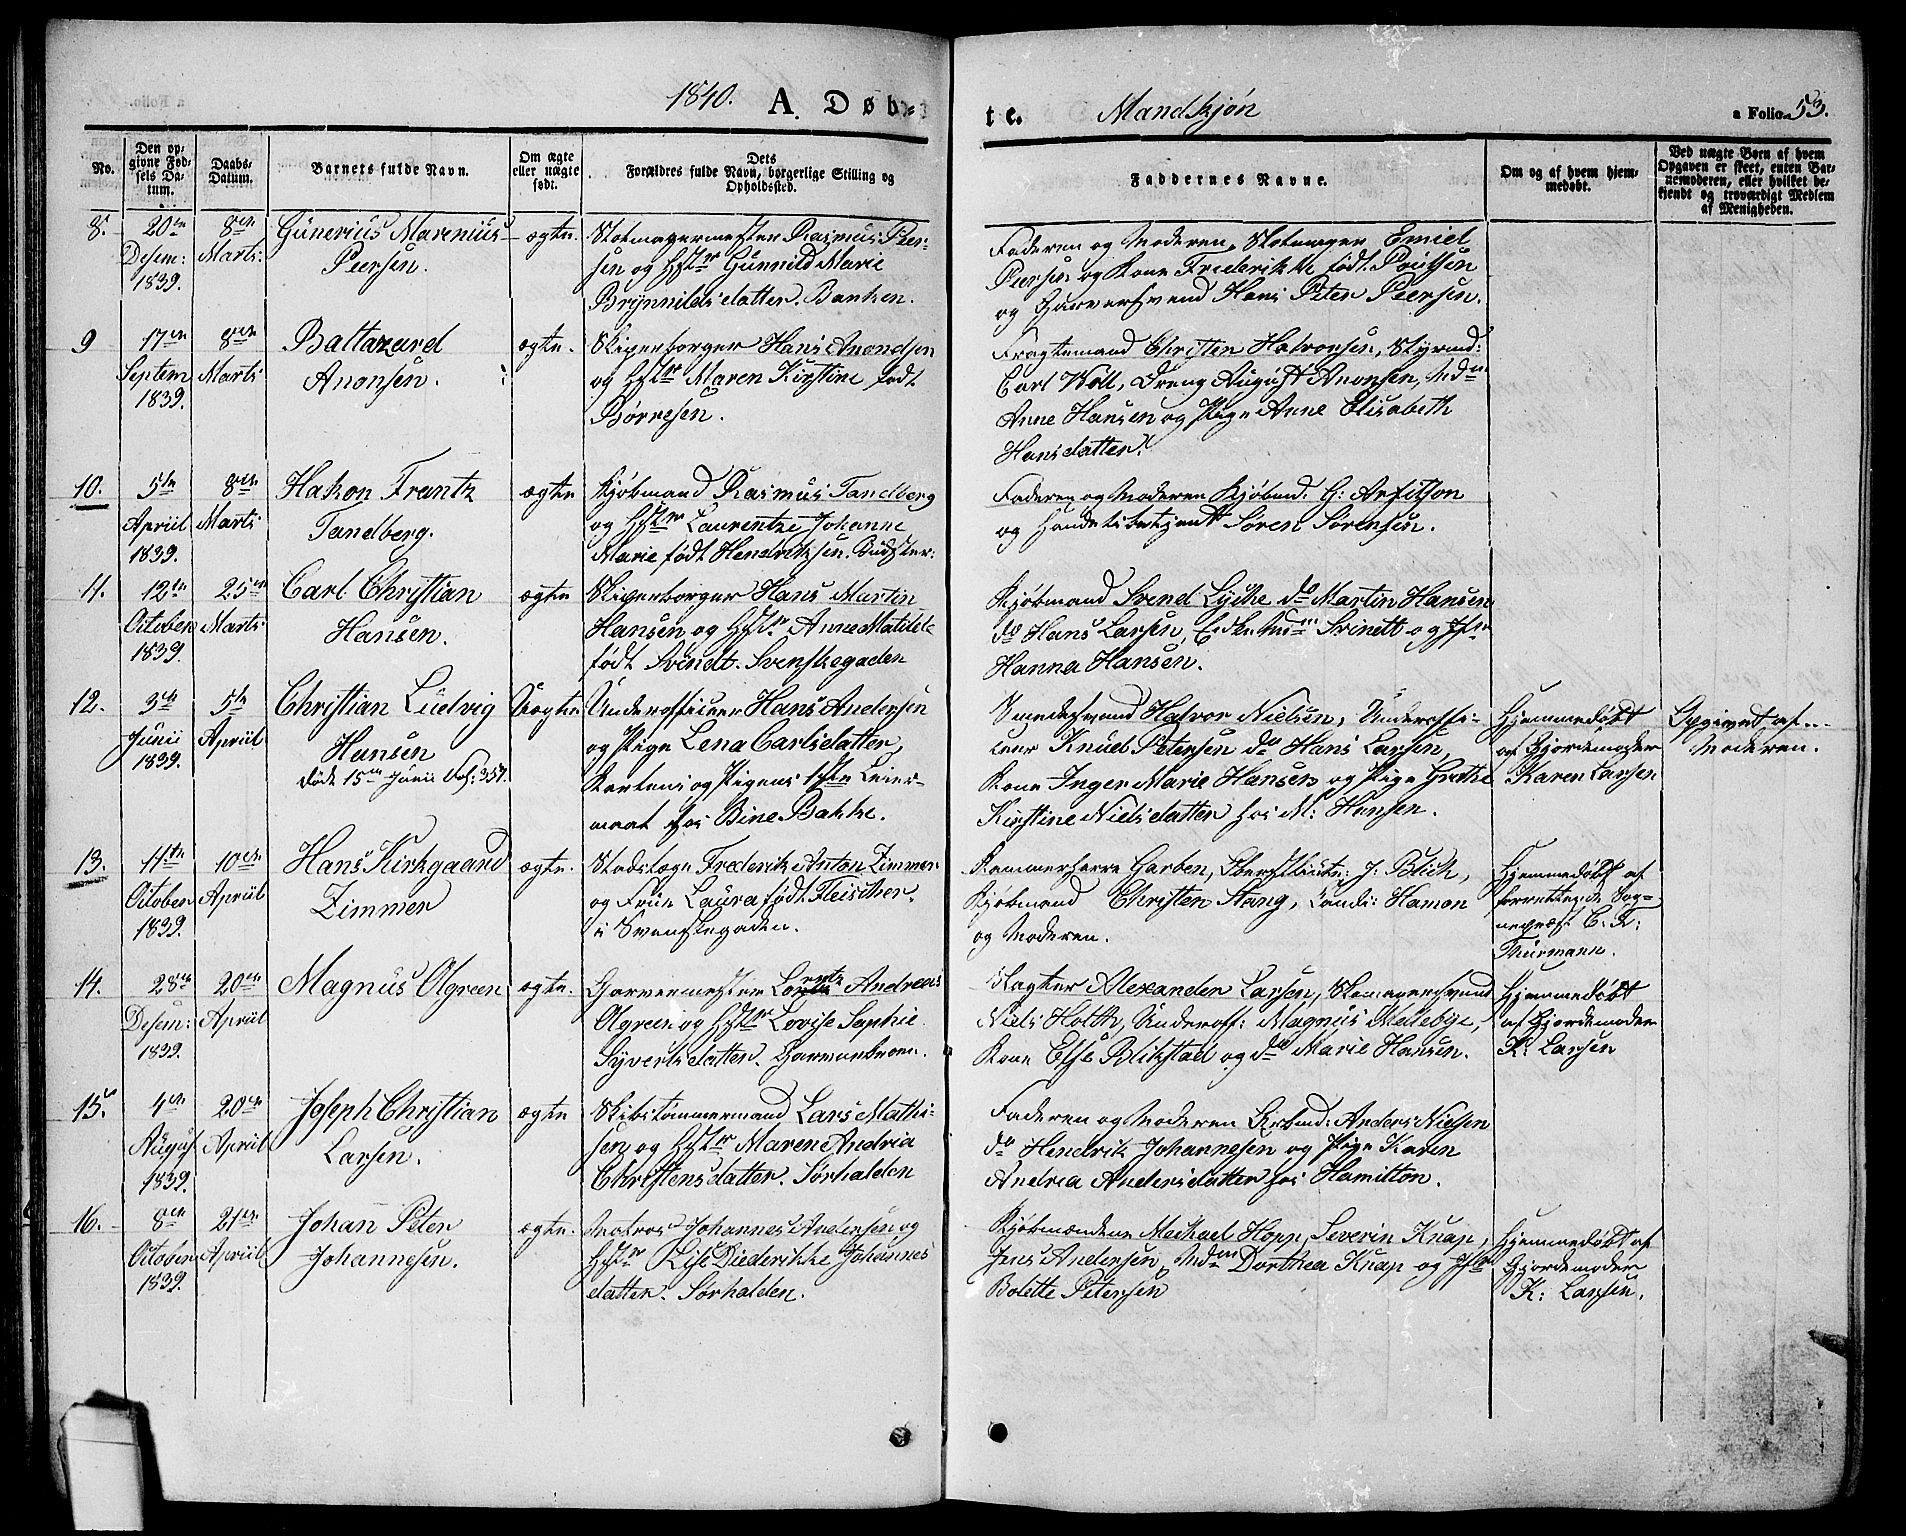 1840. A. Døbte. Mandkjøn a Folio 53.
No.
Den opgivne Fødsels Datum.
Daabs-Datum.
Barnets fulde Navn.
Om ægte eller uægte født.
Dets Forældres fulde Navn, borgerlige Stilling og Opholdssted.
Faddernes Navne.
Om og af hvem hjemmedøbt.
Ved uægte Børn af hvem Opgaven er skeet, enten Barnemoderen, eller hvilket bekjendt og troværdigt Medlem af Menigheden.
8. 20de Desem: 1839. 8de Marts:
Günerius Marenius
Peersen.
ægte.
Skomagermester Rasmus Peer-
sen og Hstr Gunnild Marie
Brynnildsdatter. Banken.
Faderen og Moderen, Skomager Emiel
Peersen og Kone Frederikke født Poulsen
og Garversvend Hans Peter Peersen.
9 17de Septem 1839. 8de Marts
Baltazard
Anonsen.
ægte.
Skiperborger Hans Anondsen
og Hstr Maren Kirstine født
Børresen.
Fragtemand Christen Halvorsen, Styrmd:
Carl Woll, Dreng August Anonsen, Mdm
Anne Hansen og Pige Anne Elisabeth
Hansdatter.
10. 5te Apriil 1839. 8de Marts
Hakon Frantz
Tandberg.
ægte
Kjøbmand Rasmus Tandberg
og Hstr Laurentze Johanne
Marie født Hendriksen.
Faderen og Moderen Kjøbmd. G:
og Handelsbetjent Søren Sørensen.
11. 12te October 1839. 25de Marts
Carl Christian
Hansen.
ægte
Skiperborger Hans Martin
Hansen og Hstr Anne Matilde
født Svendt. Svenskegaden
Kjøbmand Svend Lycke do Martin Hansen
do Hans Larsen, Enkemdm Svinett og Jfr
Hanna Hansen.
12. 3de Junii 1839. 5te Apriil
Christian Ludvig
Hansen
døde 15de Junii Fol: 357.
Uægte
Underofficeer Hans Andersen
og Pige Lena Carlsdatter,
Karlens og Pigens 1ste Leier-
maal hos Bine Bakke.
Smedesvend Halvor Nielsen, Underoffi-
ceer Knud Petersen do Hans Larsen,
Kone Inger Marie Hansen og Pige Grethe
Kirstine Nielsdatter hos M: Hansen.
Hjemmedøbt
af Gjordemoder
Karen Larsen
Opgivet af
Moderen.
13. 11te October 1839. 10de Apriil
Hans Kirkgaard
Zimmer
ægte.
Stadslæge Frederik Anton Zimmer
og Frue Laura født Fleischer.
i Svenskegaden.
Kammerherre Garben, Oberstlieutn: J. Blich,
Kjøbmand Christen Stang, Candi: Hamon
og Moderen.
Hjemmedøbt af
forrettende Sog-
nepræst C. F:
Thurmann.
14. 28de Desem: 1839. 20de Apriil
Magnus Olgreen
ægte.
Garvermester Lorentz Andreas
Olgreen og Hstr Lovise Sophie
Syvertsdatter.
Slagter Alexander Larsen, Skomagersvend
Niels Holth, Underoff: Magnus Mellebye,
Kone Else Blikstad og do Marie Hansen.
Hjemmedøbt
af Gjordemoder
K: Larsen
15. 4de August 1839. 20de Apriil
Joseph Christian
Larsen.
ægte
Skibstømmermand Lars Mathi-
sen og Hstr Maren Andria
Christensdatter. Sørhalden
Faderen og Moderen Anders Nielsen
do Hendrik Johannesen og Pige Karen
Andrea Andersdatter hos Hamilton.
16. 8de October 1839. 21de Apriil
Johan Peter
Johannesen.
ægte.
Matros Johannes Andersen og
Hstr Lise Diederikke Johannes
datter. Sørhalden.
Kjøbmændene Mechael Hopp, Severin Knap,
Jens Andersen, Mdm Dorthea Knap og Jfr
Bolette Petersen
Hjemmedøbt af
Gjordemoder
K: Larsen.